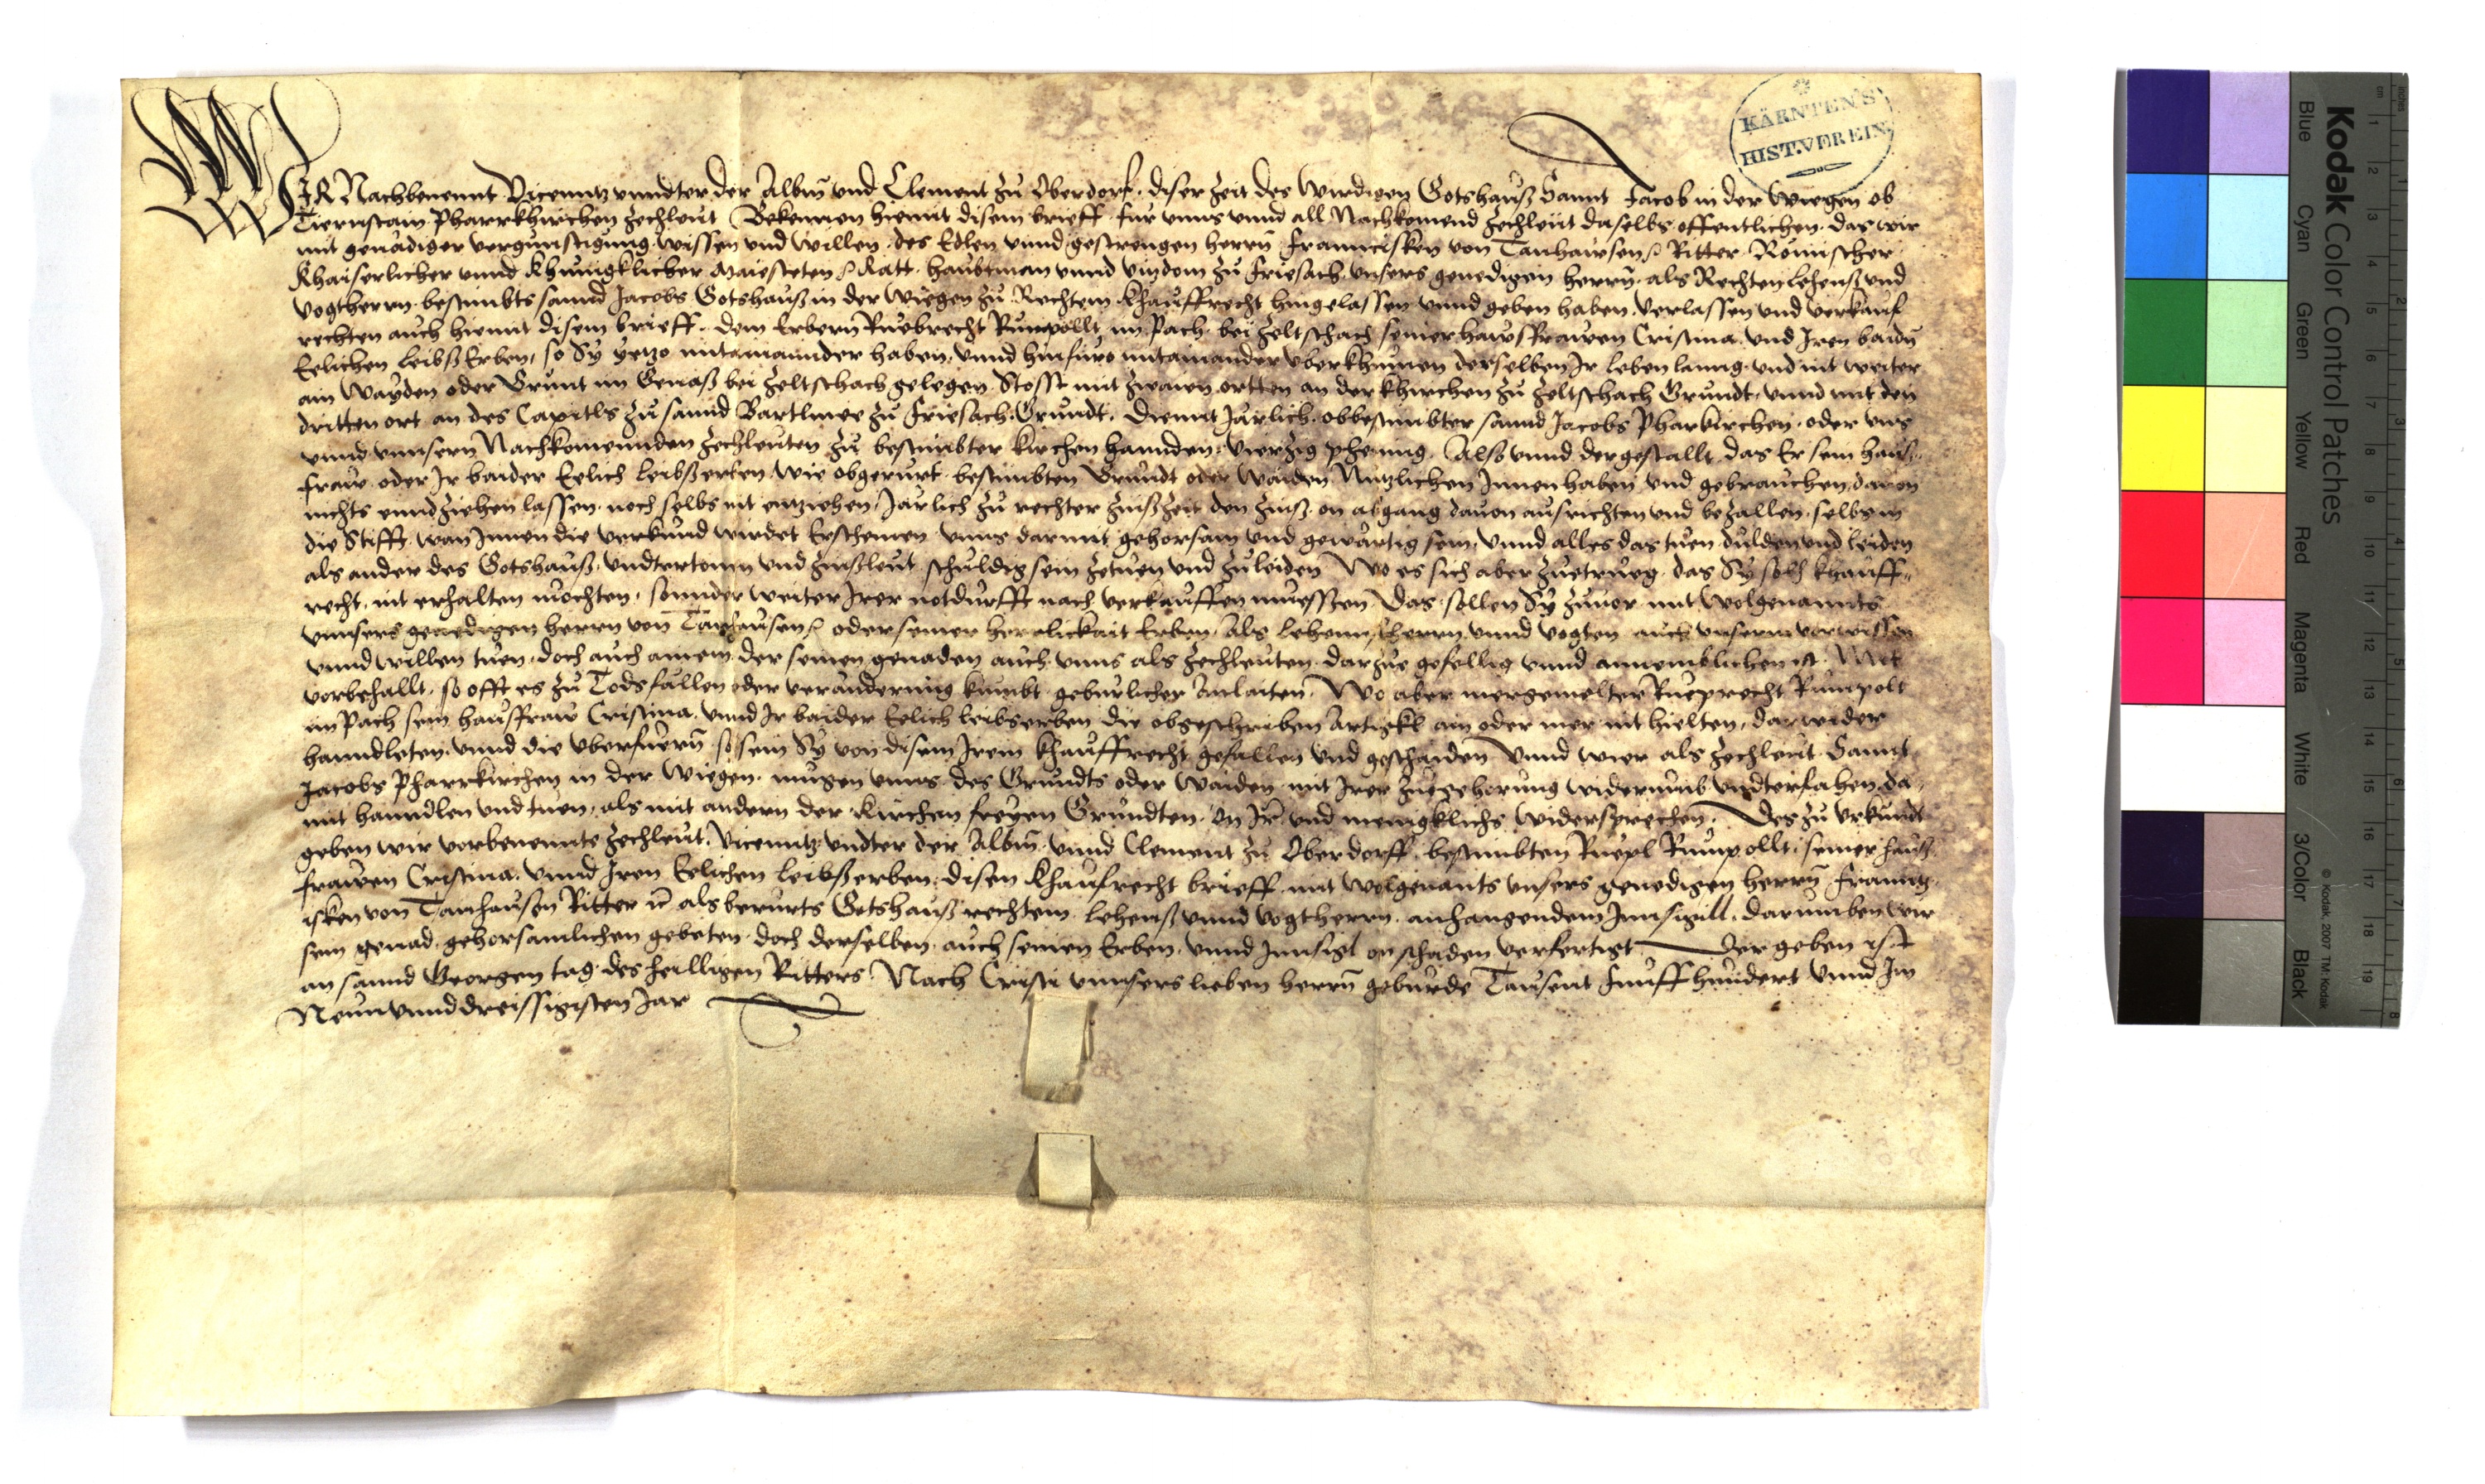 WIR Nachbenennt Vicenntz vnndter der Albm̄ vnd Clement zů Oberdorf, diser zeit des wirdigen Gotshauß Sannt Jacob in der Wiegen ob
Tiernstain Pharrkhirchen Zechleut Bekennen hiemit disem brieff fur vnns vnnd all Nachkomend Zechleut daselbs offentlichen, das wir
mit genadiger vergunstigung wissen vnd willen des Edlen vnnd gestrengen herrn̄ Franncisken von Tanhawsen Ritter Römischer
Khaiserlicher vnnd Khunigklicher Maiesteten Ratt haubtman vnnd vitzdom zů Friesach, vnsers genedigen herrn̄ als Rechten lehenß vnd
Vogtherrn bestimbts sannd Jacobs Gotshauß in der Wiegen zů Rechtem Khauffrecht hingelassen vnnd geben haben, Verlassen vnd verkauf
rechten auch hiemit disem brieff, dem Erbern̄ Ruebrecht Rumpollt im Pach bei Zeltschach seiner hawsfrawen Cristina, vnd Jren baidn̄
Eelichen leibß Erben, so Sy yetzo mitainannder haben, vnnd hinfuro mitainander vberkhumen derselben Jr leben lanng, vnd nit weiter
ain Wayden oder Grunt im Geraß bei Zeltschach gelegen Stosst mit zwaien ortten an der khirchen zů Zeltschach Grundt, vnnd mit den
dritten ort an des Capitls zů sannd Bartlmee zů Friesach Grundt, Diennt Järlich obbestimbter sannd Jacobs Pharkirchen, oder vns
vnnd vnnsern Nachkomennden Zechleuten zů bestimbter kirchen hannden, vierzig phening, Also vnnd dergestallt das Er sein hauß
fraw oder Jr baider Eelich leibß erben, wie obgerurt, bestimbten Grundt oder Waiden Nutzlichen Jnnen haben vnd gebrauchen, dauon
nichts enndziehen lassen, noch selbs nit entziehen, Järlich zů rechter zinßzeit den zinß on abgang dauon ausrichten vnd bezallen, selbs in
die Stifft, wan Jnnen die verkund wirdet Erscheinen vnns darmit gehorsam vnd gewärtig sein, vnnd alles das tuen dulden vnd leiden
als ander des Gotshauß vndtertonn vnd zinßleut schuldig sein zetuen vnd zů leiden Wo es sich aber zuetrueg, das Sy solh khauff-
recht, nit erhalten möchten, sonnder weiter Jrer notdurfft nach verkauffen muessen Das sollen Sy zuuor mit Wolgenannts
vnnsers genedigen herrn von Tanhausen oder seiner herrlickait Erben, Als lehennsherrn, vnnd vogten auch vnserm vorwissen
vnnd willen tuen, doch auch ainem der seinen genaden auch vnns als Zechleuten, darzue gefellig vnnd annemblichen ist, Mit
vorbehallt, so offt es zů Todsfallen oder veränderung kumbt, geburlicher Anlaiten, Wo aber mergemelter Rueprecht Rumpolt
im Pach sein hausfraw Cristina, vnnd Jr baider Eelich leibserben die obgeschriben Artigkl ain oder mer nit hielten, darwider
hanndleten, vnnd die vberfuern̄ so sein Sy von disem Jrem khauffrecht gefallen vnd geschaiden Vnnd wier als Zechleut Sannt
Jacobs Pharrkirchen in der Wiegen, mugen vnns des Grundts oder Waiden mit Jrer zuegehorung widerumb vndterfahen, da-
mit hanndlen vnd tuen, als mit andern der kirchen freyen Grundten, on Jr vnd menigklichs widersprechen, Des zů vrkundt
geben wir vorbenennte Zechleut, Vicenntz vndter der Albm̄ vnnd Clement zů Oberdorff, bestimbten Ruepl Rumpollt, seiner hauß
frawen Cristina, vnnd Jren Eelichen leibßerben, disen Khaufrecht brieff mit Wolgenants vnsers genedigen herrn̄ Franntz
isken von Tanhausen Ritter als berurts Gotshauß rechtem lehenß vnnd Vogtherrn, anhangendem Jnnsigill, darumben wir
sein genad gehorsamlichen gebeten, doch derselben, auch seinen Erben, vnnd Jnnsigl on schaden verfertigt Der geben ist
an sannd Georgen tag des heilligen Ritters, Nach Cristi vnnsers lieben herrn̄ geburde Tausent Funffhundert vnnd Jm
Neunvnnddreissigisten Jar
KÄRNTEN'S
HIST. VEREIN
Kodak Color Control Patches
Blue Cyan Green Yellow Red Magenta White 3/Color Black
© Kodak, 2007 TM: Kodak
inches 1 2 3 4 5 6 7 8
cm 1 2 3 4 5 6 7 8 9 10 11 12 13 14 15 16 17 18 19